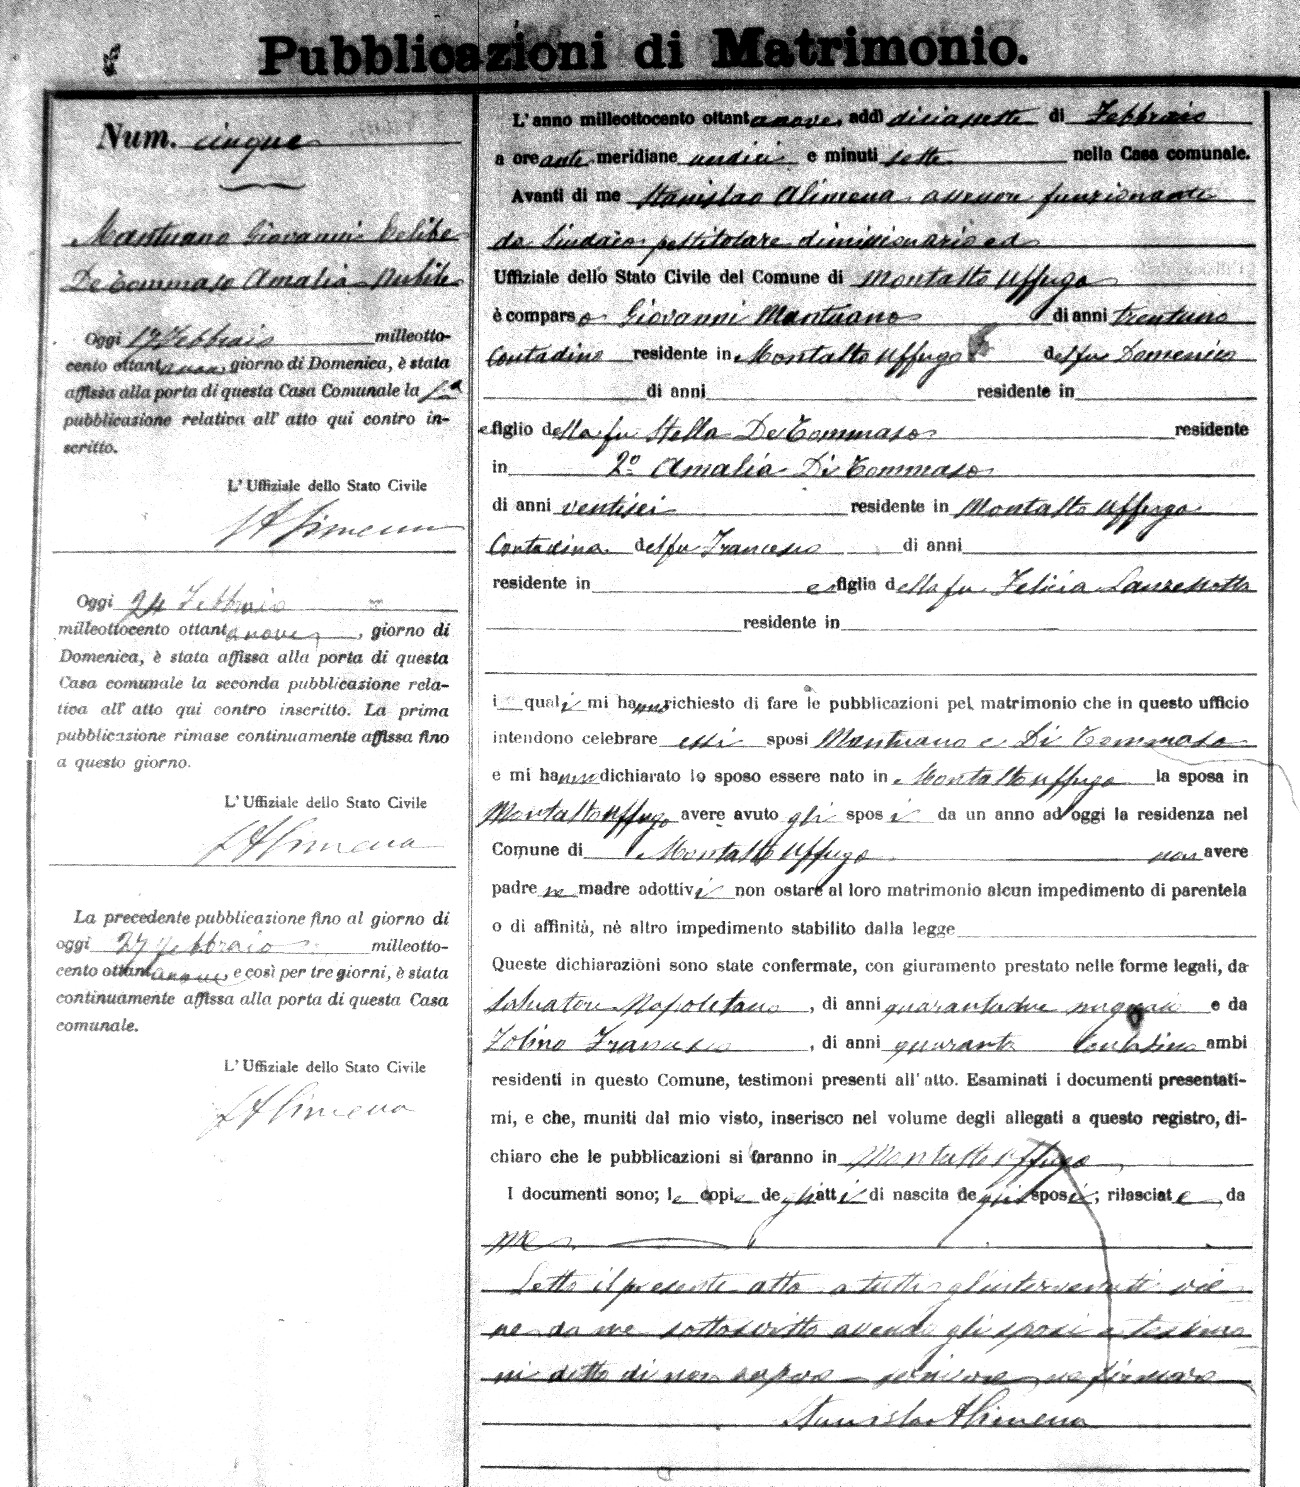 Pubblicazioni di Matrimonio.
Num. cinque
Mantuano Giovanni Celibe
De Tommaso Amalia Nubile
Oggi 17 Febbraio milleotto-
cento ottantanove, giorno di Domenica, è stata
affissa alla porta di questa Casa Comunale la 1ª
pubblicazione relativa all' atto qui contro in-
scritto.
L' Uffiziale dello Stato Civile
SAlimena
Oggi 24 Febbraio
milleottocento ottantanove, giorno di
Domenica, è stata affissa alla porta di questa
Casa comunale la seconda pubblicazione rela-
tiva all' atto qui contro inscritto. La prima
pubblicazione rimase continuamente affissa fino
a questo giorno.
L' Uffiziale dello Stato Civile
SAlimena
La precedente pubblicazione fino al giorno di
oggi 27 febbraio milleotto-
cento ottantanove e così per tre giorni, è stata
continuamente affissa alla porta di questa Casa
comunale.
L' Uffiziale dello Stato Civile
SAlimena
L' anno milleottocento ottantanove, addì diciassette di Febbraio
a ore ante meridiane undici e minuti sette nella Casa comunale.
Avanti di me Stanislao Alimena assessore funzionante
da Sindaco pel titolare dimissionario ed
Uffiziale dello Stato Civile del Comune di Montalto Uffugo
è comparso Giovanni Mantuano di anni trentuno
Contadino residente in Montalto Uffugo del fu Domenico
di anni residente in
e figlio della fu Stella De Tommaso residente
in 2º Amalia Di Tommaso
di anni ventisei residente in Montalto Uffugo
Contadina del fu Francesco di anni
residente in e figlia della fu Felicia
residente in
i quali mi hanno richiesto di fare le pubblicazioni pel matrimonio che in questo ufficio
intendono celebrare essi sposi Mantuano e Di Tommaso
e mi hanno dichiarato lo sposo essere nato in Montalto Uffugo la sposa in
Montalto Uffugo avere avuto gli sposi da un anno ad oggi la residenza nel
Comune di Montalto Uffugo non avere
padre ne madre adottivi non ostare al loro matrimonio alcun impedimento di parentela
o di affinità, nè altro impedimento stabilito dalla legge
Queste dichiarazioni sono state confermate, con giuramento prestato nelle forme legali, da
Salvatore Napoletano, di anni quarantadue e da
Folino Francesco, di anni quaranta Contadino ambi
residenti in questo Comune, testimoni presenti all' atto. Esaminati i documenti presentati-
mi, e che, muniti dal mio visto, inserisco nel volume degli allegati a questo registro, di-
chiaro che le pubblicazioni si faranno in Montalto Uffugo
I documenti sono; le copie degli atti di nascita degli sposi; rilasciate da
me.
Letto il presente atto a tutti gl'intervenuti vie
ne da me sottoscritto avendo gli sposi e testimo
ni detto di non sapere scrivere ne firmare
Stanislao Alimena